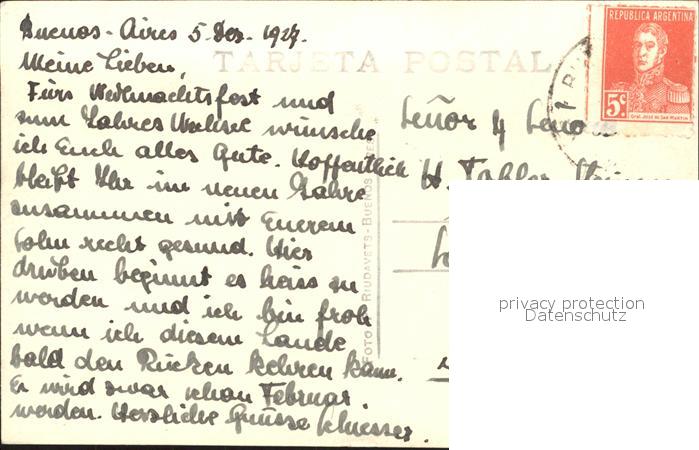 Buenos-Aires 5. Dez. 1927.
TARJETA POSTAL
Meine Lieben,
Fürs Weihnachtsfest und
zum Jahres Wechsel wünsche
ich Euch alles Gute. Hoffentlich
bleibt Ihr im neuen Jahre
zusammen mit Eurem
Sohn recht gesund. Hier
drüben beginnt es heiss zu
werden und ich bin froh
wenn ich diesem Lande
bald den Rücken kehren kann.
Er wird zwar schon Februar
werden. Herzliche Grüsse
FOTO RIUDAVETS - BUENOS
REPUBLICA ARGENTINA
5c
Gral. José de San Martin
Señor y Señora
H. Tobler
privacy protection
Datenschutz